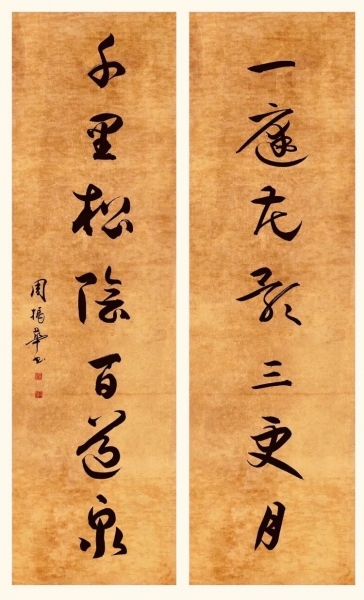 一庭花影三更月
千里松陰百道泉
周振華书